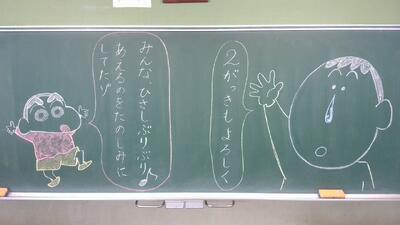 2がっきもよろしく
みんな、ひさしぶりぶり♪
あえるのをたのしみに
してたゾ